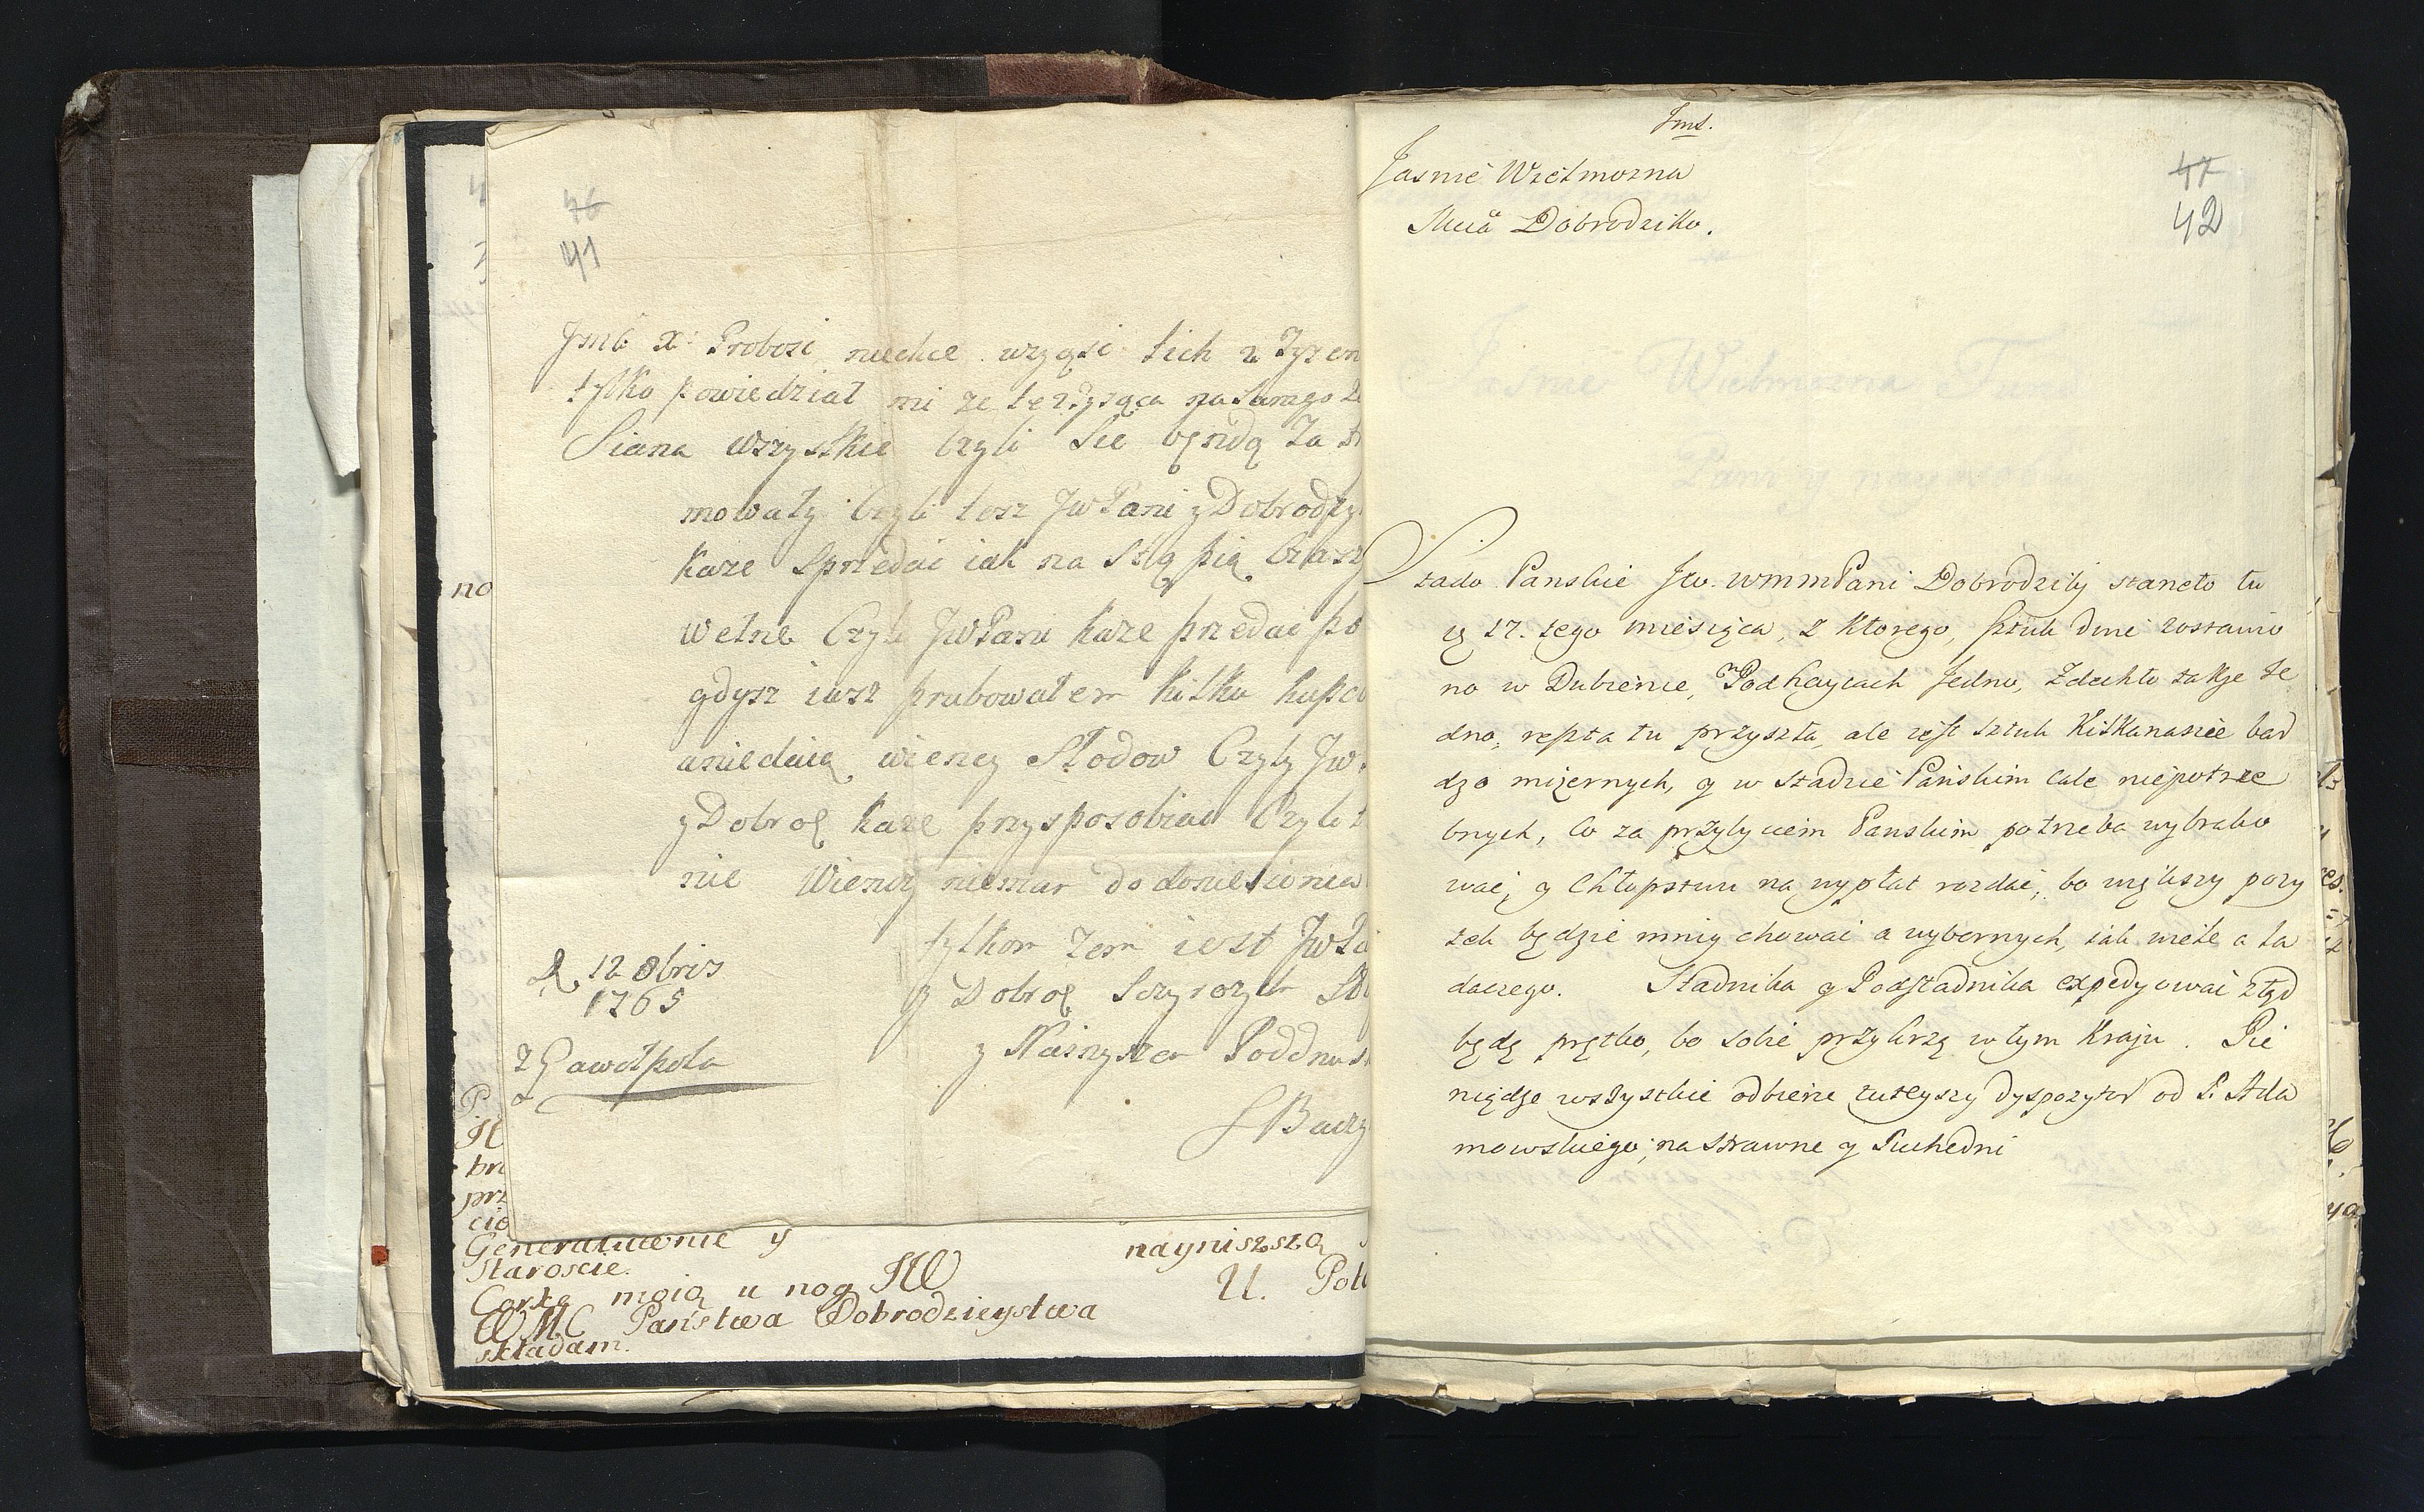 46
41
Jmć X. Probosc niechce wrząsc tich 2 Tysen
tylko powiedział mi ze te 2 Tysąca na Samego
Siana wszystkie Czyli Sie będą Za
mowały Czyli tesz JwPani y Dobrodzy
Kaze Sprzedac iak na Stąpią Czasy
Wełne Czyli JwPani Kaze przedac po
gdysz iusz prubowałem Kilku kupc
aniedaią wiency Słodow Czyly Jw
y Dobrog kaze przysposobiac Czyli
nie Wiency niemar do doniesienia
tylkom Zem iest JwPa
y Dobrog Sczyrozy
y Nainyszem Poddnos
Baczy
D 12 8bris
1765
Z Pawołpola
no
P
bn
prz
cio
Generałuwnie y
Staroscie.
Corkę moią u nog JW
WMC Państwa Dobrodzieystwa
składam.
nayniszszą
U. Poto
Jmć.
Jasnie Wielmozna
Mcia Dobrodziko.
47
42
Stado Panskie Jw. WmmPani Dobrodziki staneło tu
17. tego miesiąca, z ktorego, sztuk dwie zostawio
no w Dubienie, w Podhaycach Jedno, Zdechło takze Je
dno, reszta tu przyszła, ale jest sztuk Kilkanascie bar
dzo mizernych, y w Stadzie Pańskim cale niepotrze
bnych, Co za przybyciem Panskim potrzeba wybrako
wać, y Chłopstwu na wypłat rozdać, bo większy pozy
tek będzie mniy chować a wybornych, iak wiele a la
daczego. Stadnika y Podstadnika expedyować ztąd
będę prętko, bo sobie przykrzą w tym Kraju. Pie
niądze wszystkie odbierze tuteyszy dyspozytor od P. Ada
mowskiego, na Strawne y Suchedni